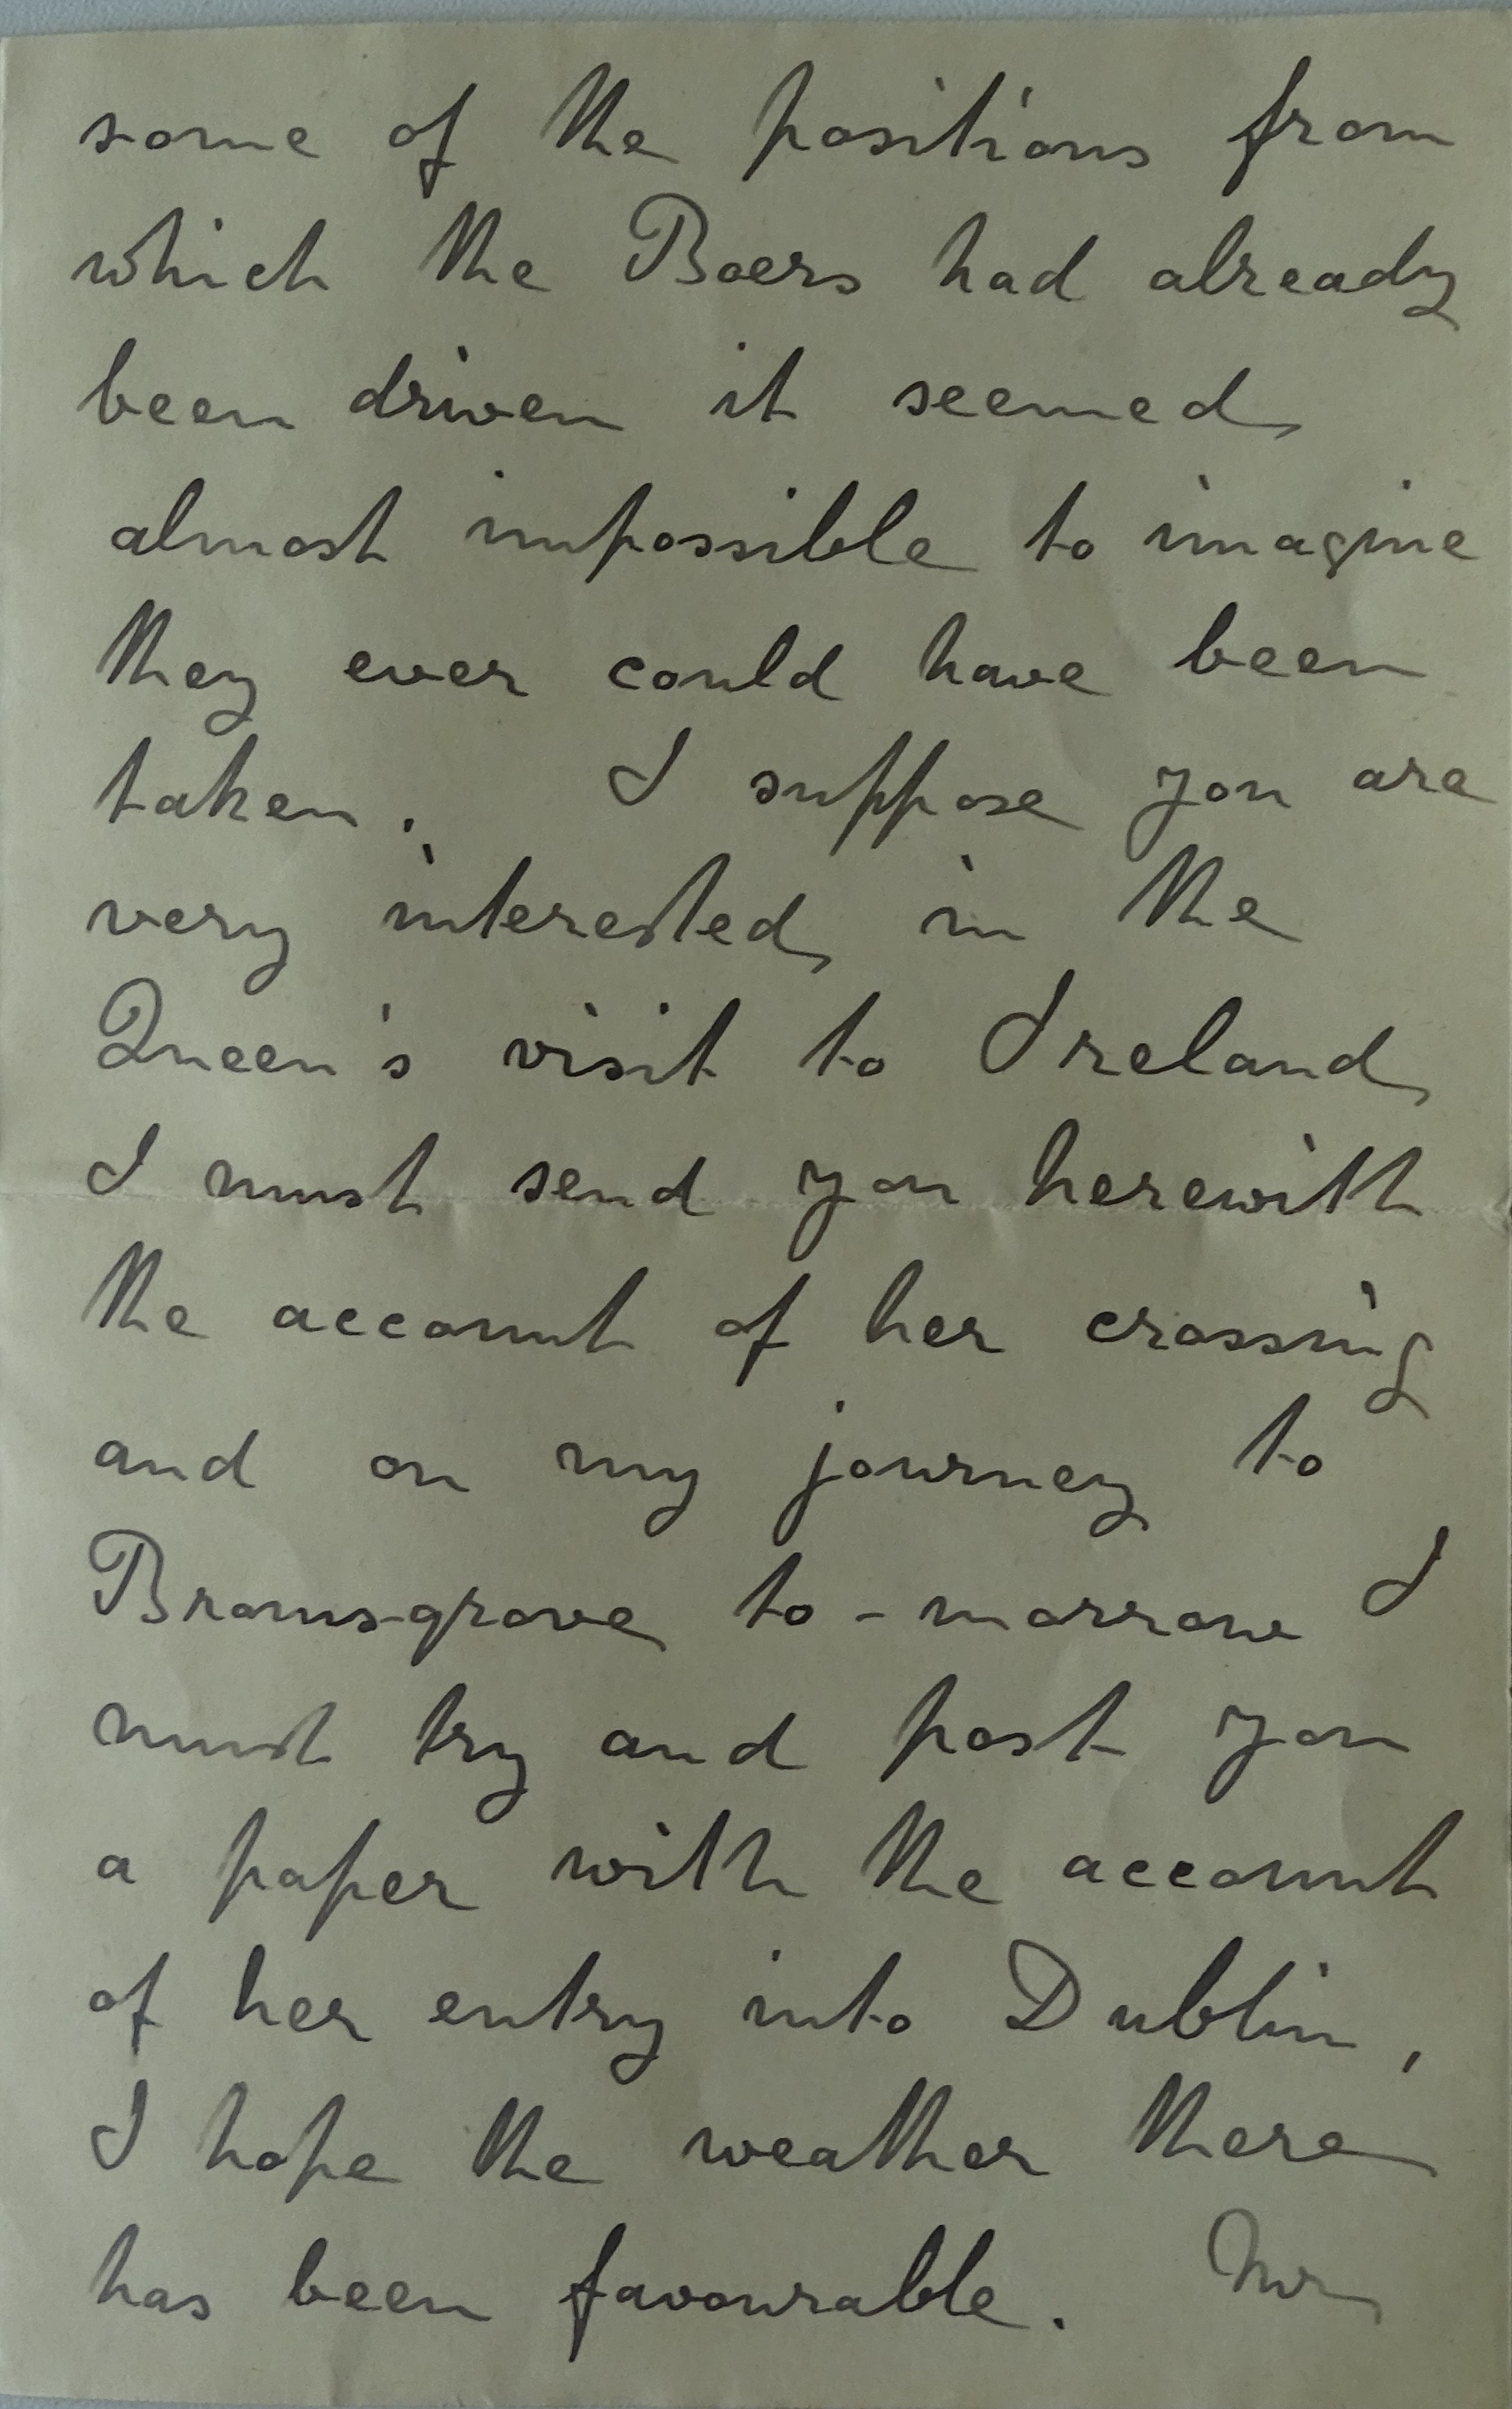 some of the positions from
which the Boers had already
been driven it seemed
almost impossible to imagine
they ever could have been
taken. I suppose you are
very interested in the
Queen's visit to Ireland
I must send you herewith
the account of her crossing
and on my journey to
Bromsgrove to-morrow I
must try and post you
a paper with the account
of her entry into Dublin,
I hope the weather there
has been favourable.